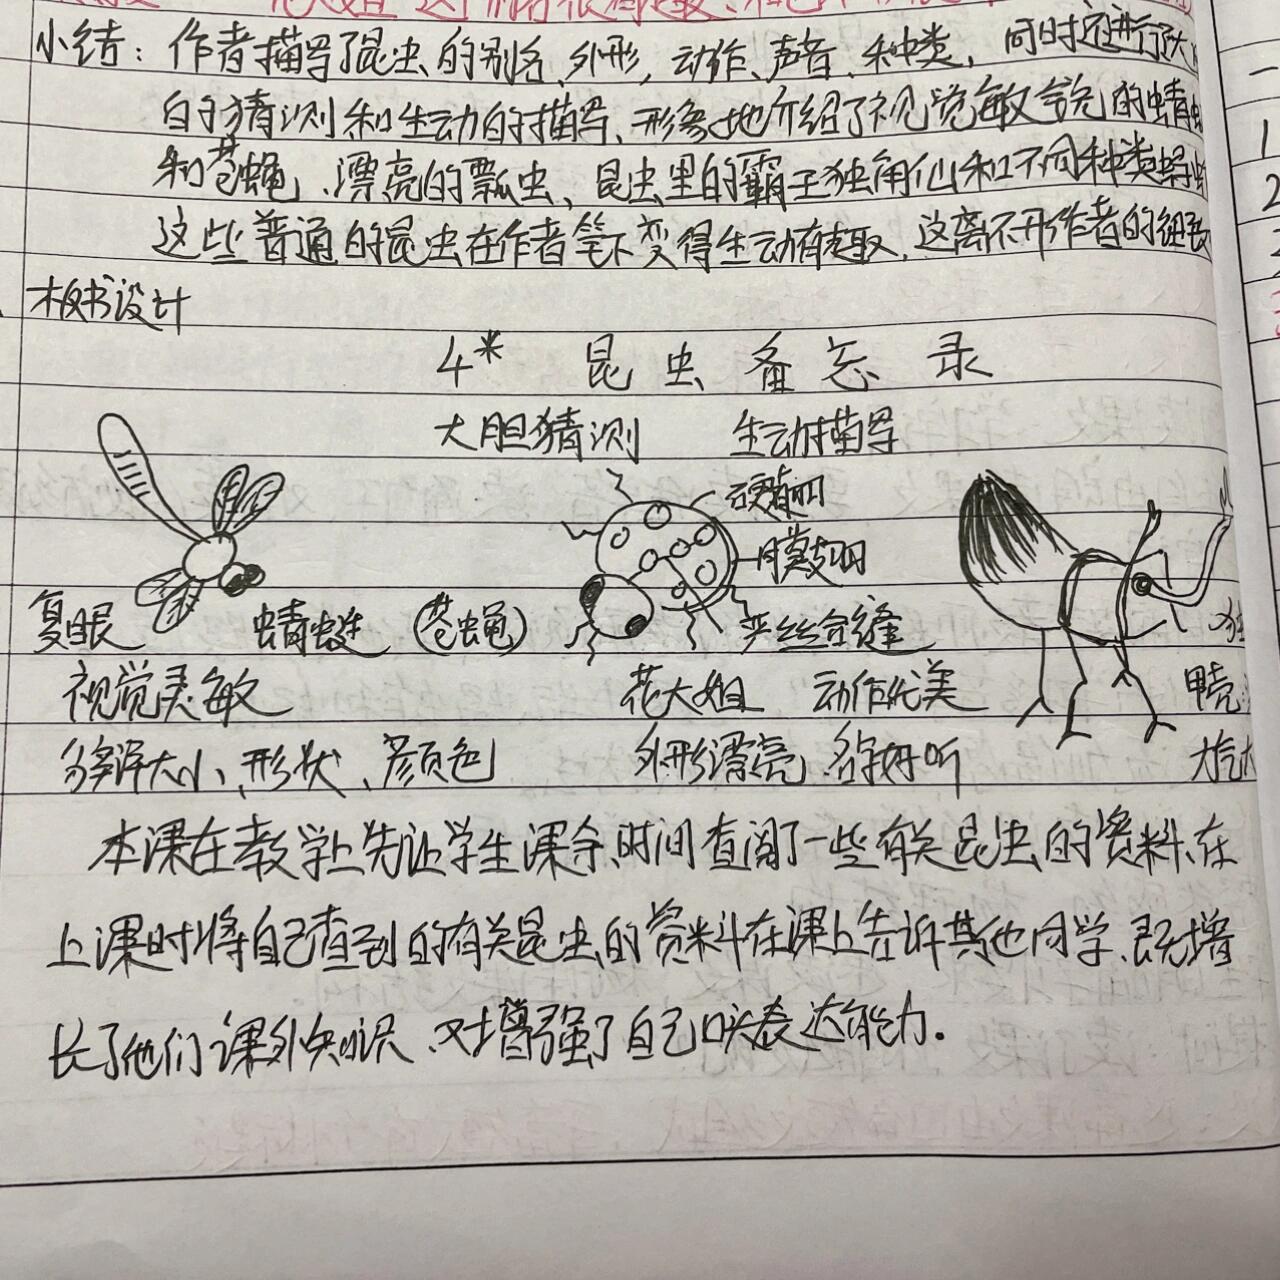 花大姐 这个
小结：作者描写了昆虫的别名、外形、动作、声音、种类，同时还进行了大
的猜测和生动的描写，形象地介绍了视觉敏锐的蜻
和苍蝇、漂亮的瓢虫、昆虫里的霸王独角仙和不同种类
这些普通的昆虫在作者笔下变得生动有趣，这离不开作者的细致
板书设计
4* 昆虫备忘录
大胆猜测 生动描写
硬翅
膜翅
复眼 蜻蜓 (苍蝇) 严丝合缝
视觉灵敏 花大姐 动作优美 甲壳
分辨大小、形状、颜色 外形漂亮、名字好听
本课在教学上先让学生课余时间查阅了一些有关昆虫的资料，在
上课时将自己查到的有关昆虫的资料在课上告诉其他同学，既增
长了他们课外知识，又增强了自己口头表达能力。